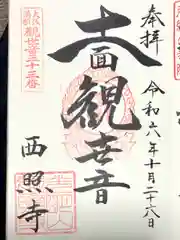 奉拝
令和六年十月二十六日
十一面観世音
大阪
観世音三十三番
西照寺